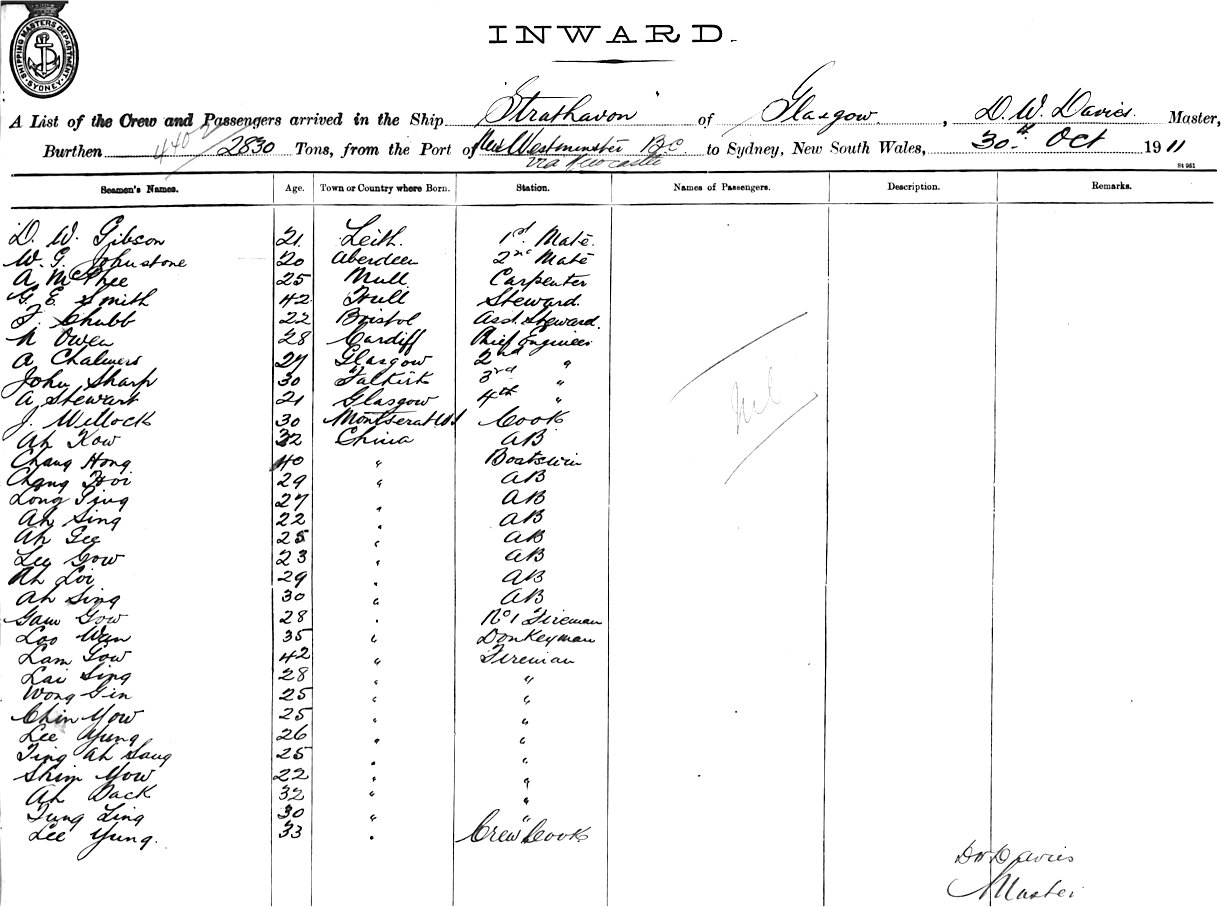 SHIPPING MASTERS DEPARTMENT SYDNEY
INWARD.
A List of the Crew and Passengers arrived in the Ship Strathavon of Glasgow, D. W. Davies Master,
Burthen 4402/2830 Tons, from the Port of New Westminster B.C. to Sydney, New South Wales, 30th Oct 1911
via Newcastle
St 951
Seamen's Names. Age. Town or Country where Born. Station. Names of Passengers. Description. Remarks.
D. W. Gibson 21 Leith. 1st Mate.
W. G. Johnstone 20 Aberdeen 2nd Mate
A McPhee 25 Mull Carpenter
G. E. Smith 42 Hull Steward.
F. Chubb 22 Bristol Asst. Steward.
N Owen 28 Cardiff Chief Engineer
A Chalmers 27 Glasgow 2nd "
John Sharp 30 Falkirk 3rd "
A Stewart 21 Glasgow 4th "
J. Willock 30 Montserat WI Cook
Ah Kow 32 China AB
Chang Hong 40 " Boatswin
Chang Hoi 29 " AB
Long Ting 27 " AB
Ah Sing 22 " AB
Ah Gee 25 " AB
Lee Gow 23 " AB
Ah Loi 29 " AB
Ah Sing 30 " AB
Gam Gow 28 " No 1 Fireman
Loo Wan 35 " Donkeyman
Lam Gow 42 " Fireman
Lai Sing 28 " "
Wong Gin 25 " "
Chin Yow 25 " "
Lee Yung 26 " "
Ting Ah Sang 25 " "
Shim Yow 22 " "
Ah Back 32 " "
Tung Ling 30 " "
Lee Yung. 33 " Crew Cook
Nil
DW Davies
Master